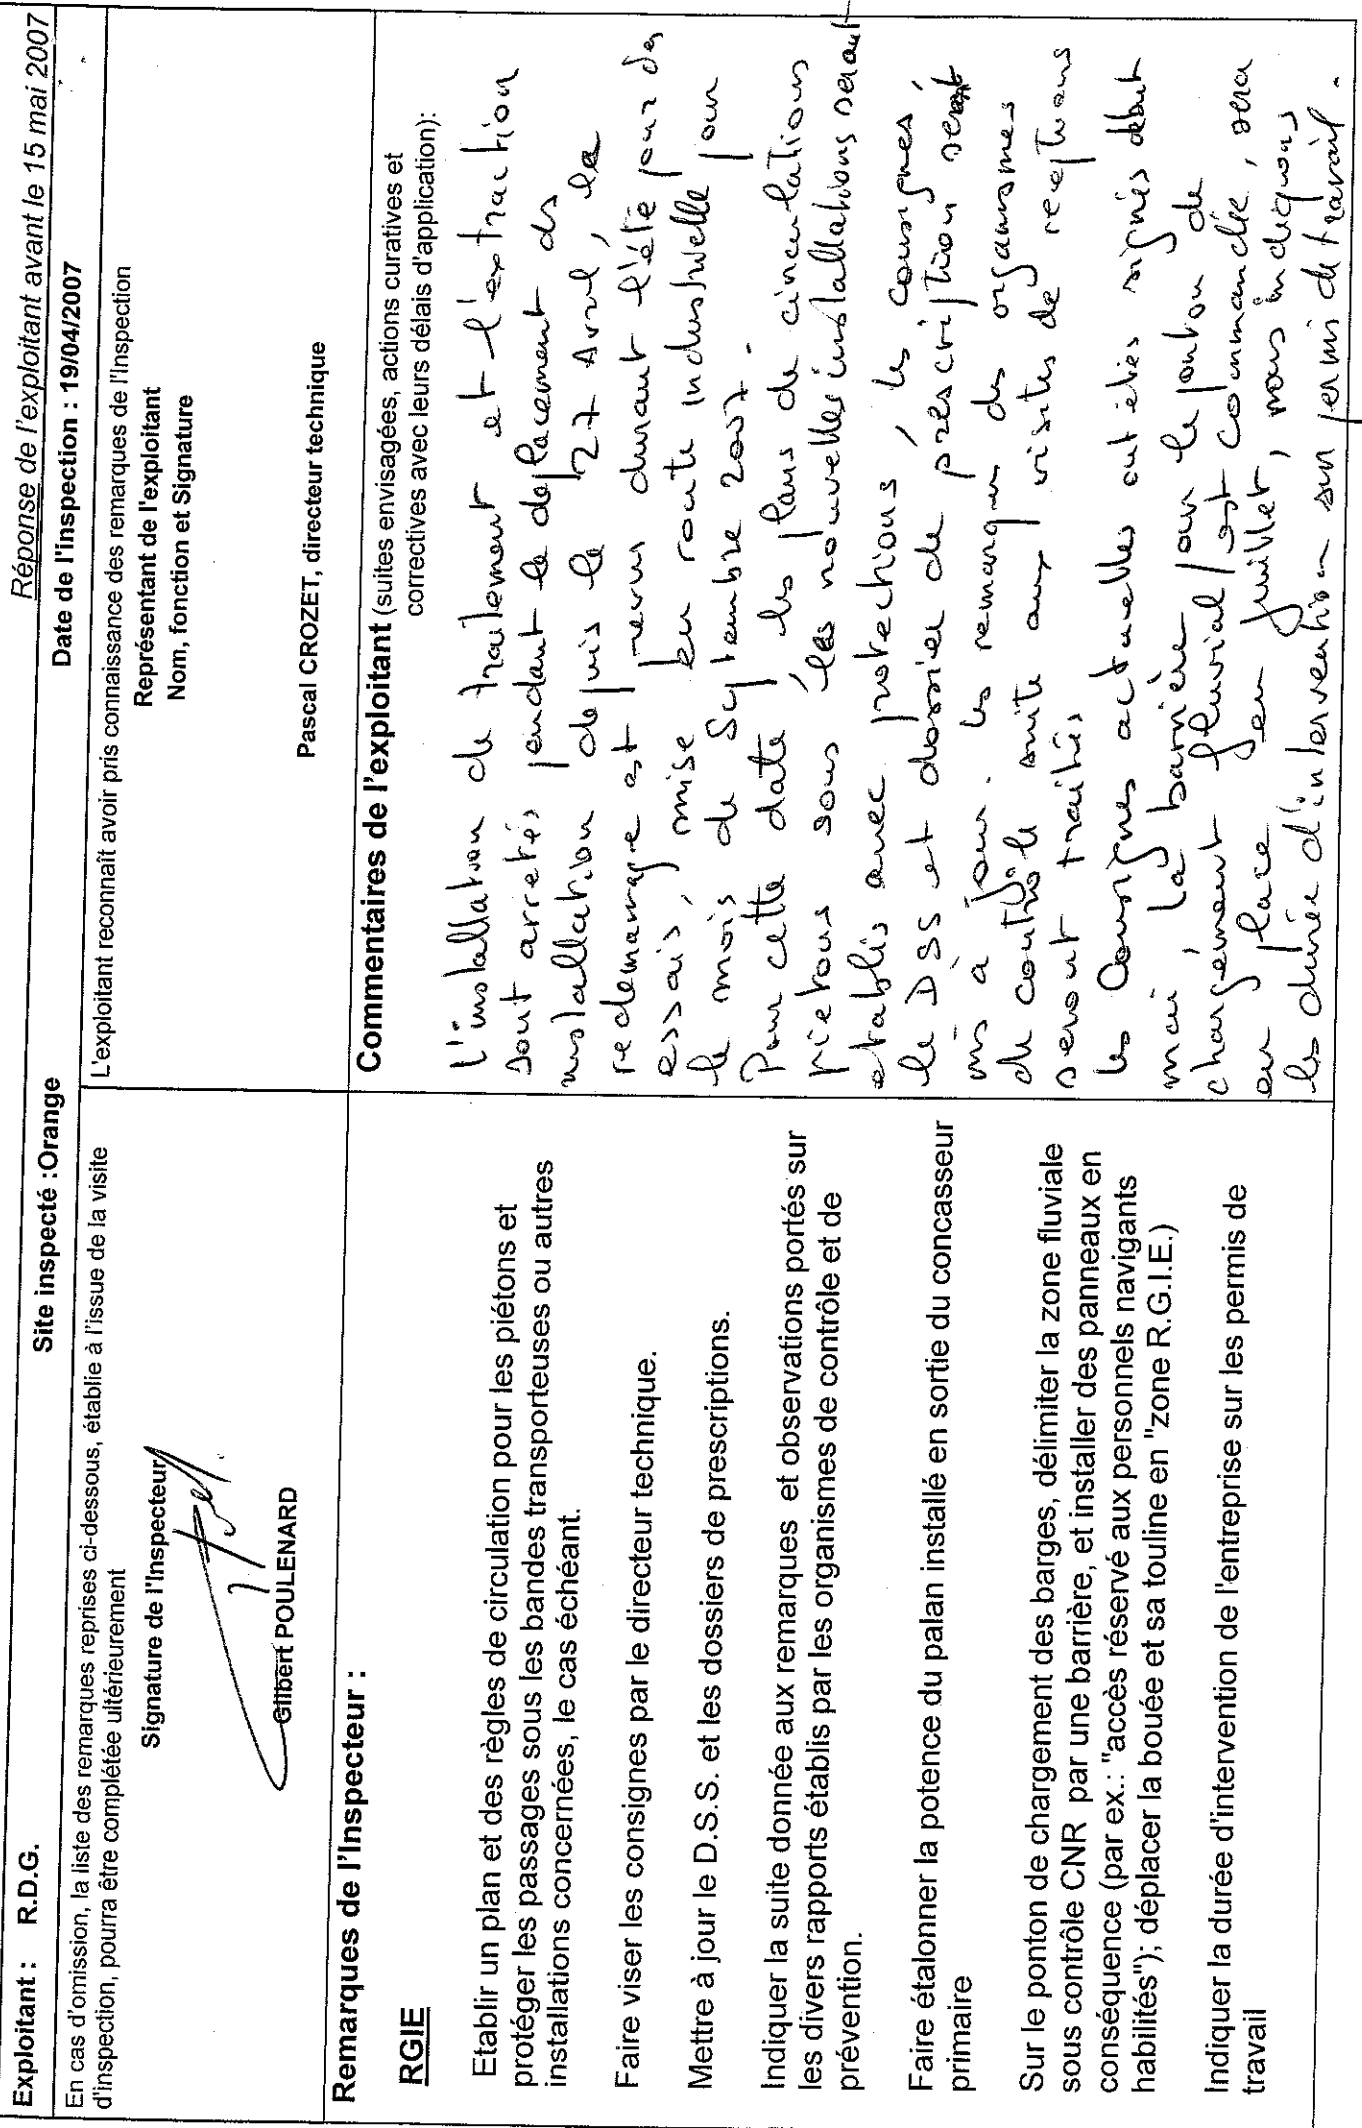 Réponse de l'exploitant avant le 15 mai 2007
Exploitant : R.D.G.
Site inspecté :Orange
Date de l'inspection : 19/04/2007
En cas d'omission, la liste des remarques reprises ci-dessous, établie à l'issue de la visite
d'inspection, pourra être complétée ultérieurement
Signature de l'Inspecteur
Gilbert POULENARD
L'exploitant reconnaît avoir pris connaissance des remarques de l'Inspection
Représentant de l'exploitant
Nom, fonction et Signature
Pascal CROZET, directeur technique
Remarques de l'Inspecteur :
RGIE
Etablir un plan et des règles de circulation pour les piétons et
protéger les passages sous les bandes transporteuses ou autres
installations concernées, le cas échéant.
Faire viser les consignes par le directeur technique.
Mettre à jour le D.S.S. et les dossiers de prescriptions.
Indiquer la suite donnée aux remarques et observations portés sur
les divers rapports établis par les organismes de contrôle et de
prévention.
Faire étalonner la potence du palan installé en sortie du concasseur
primaire
Sur le ponton de chargement des barges, délimiter la zone fluviale
sous contrôle CNR par une barrière, et installer des panneaux en
conséquence (par ex.: "accès réservé aux personnels navigants
habilités"); déplacer la bouée et sa touline en "zone R.G.I.E.)
Indiquer la durée d'intervention de l'entreprise sur les permis de
travail
Commentaires de l'exploitant (suites envisagées, actions curatives et
correctives avec leurs délais d'application):
L'installation de traitement et l'extraction
sont arretés pendant le deplacement ds
installation depuis le 27 Avril, le
redemarrage est prevus durant l'été pour des
essais, mise en route industrielle pour
le mois de Septembre 2007.
Pour cette date, les plans de circulations
pietons sous les nouvelles installations serait
etablis avec protections, les consignes,
le DSS et dossier de prescription seront
mis à jour. les remarques des organismes
de contrôle suite aux visites de receptions
seront traités
les Consignes actuelles ont étés signés début
mai, La barrière pour le ponton de
chargement fluvial est commandée, sera
en place en juillet, nous indiquons
les durée d'intervention sur permis de travail.